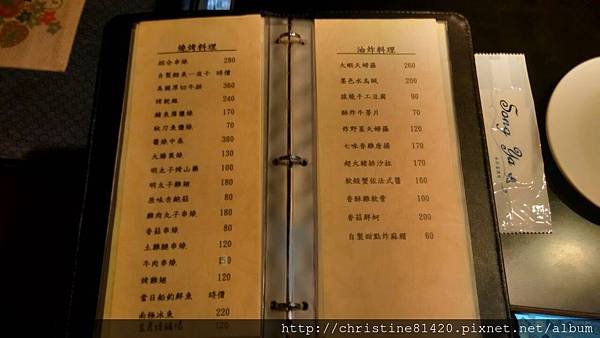 燒烤料理
綜合串燒 280
自製鯖魚一夜干 時價
美國厚切牛排 360
烤魷魚 240
鯖魚薄鹽燒 170
秋刀魚鹽燒 70
醬燒中卷 380
大腸蔥燒 130
明太子烤山藥 160
明太子雞翅 80
原味杏鮑菇 80
雞肉丸子串燒 180
香菇串燒 80
土雞腿串燒 120
牛肉串燒 150
烤雞翅 120
當日船釣鮮魚 時價
南極冰魚 220
120
油炸料理
大蝦天婦羅 260
墨色水烏賊 200
狼燒手工豆腐 90
酥炸牛蒡片 70
炸野菜天婦羅 120
七味香雞唐揚 170
超火豬排沙拉 170
軟殼蟹佐法式醬 160
香酥雞軟骨 100
香菇鮮蚵 200
自製甜點炸麻糬 60
Song Ya
http://christine81420.pixnet.net/album